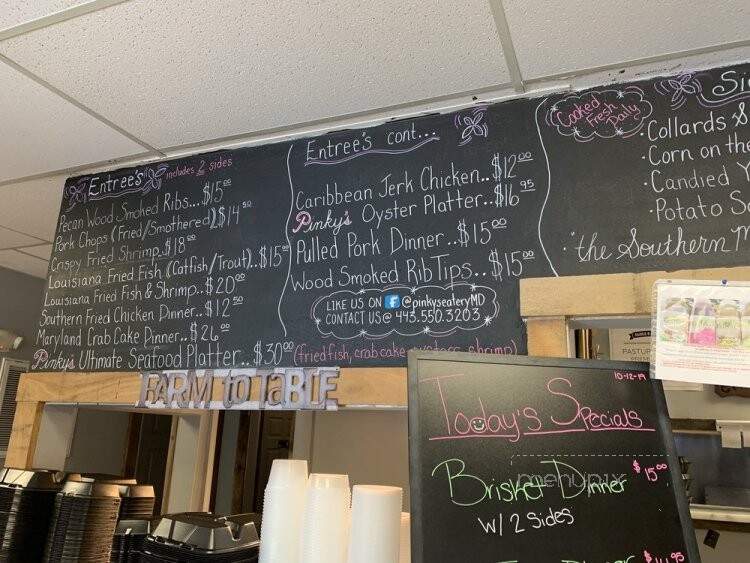 Entree's includes 2 sides
Pecan Wood Smoked Ribs... $15.00
Pork Chops (Fried/Smothered) $14.50
Crispy Fried Shrimp. $18.00
Louisiana Fried Fish (Catfish/Trout).. $15.00
Louisiana Fried Fish & Shrimp.. $20.00
Southern Fried Chicken Dinner.. $12.50
Maryland Crab Cake Dinner.. $26.00
Pinky's Ultimate Seafood Platter.. $30.00 (fried fish, crab cake, oysters, shrimp)
Entree's cont...
Caribbean Jerk Chicken.. $12.00
Pinky's Oyster Platter.. $16.95
Pulled Pork Dinner.. $15.00
Wood Smoked Rib Tips.. $15.00
LIKE US ON f @pinkyseateryMD
CONTACT US@ 443.550.3203
Cooked
Fresh
Daily
Si
Collards &
Corn on the
Candied Y
Potato Sa
"the Southern M
FARM to TaBLE
10-12-19
Today's Specials
Brisket Dinner $15.00
w/ 2 Sides
Dinner $14.95
menupix
PASTUR